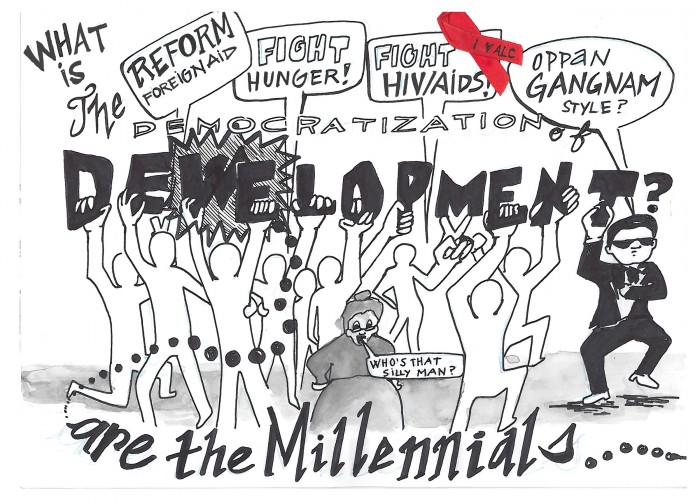 WHAT
is
The
REFORM
FOREIGN AID
FIGHT
HUNGER!
FIGHT
HIV/AIDS!
I V ALC
OPPAN
GANGNAM
STYLE?
DEMOCRATIZATION
of
DEVELOPMENT?
WHO'S THAT
SILLY MAN?
are the Millennials......